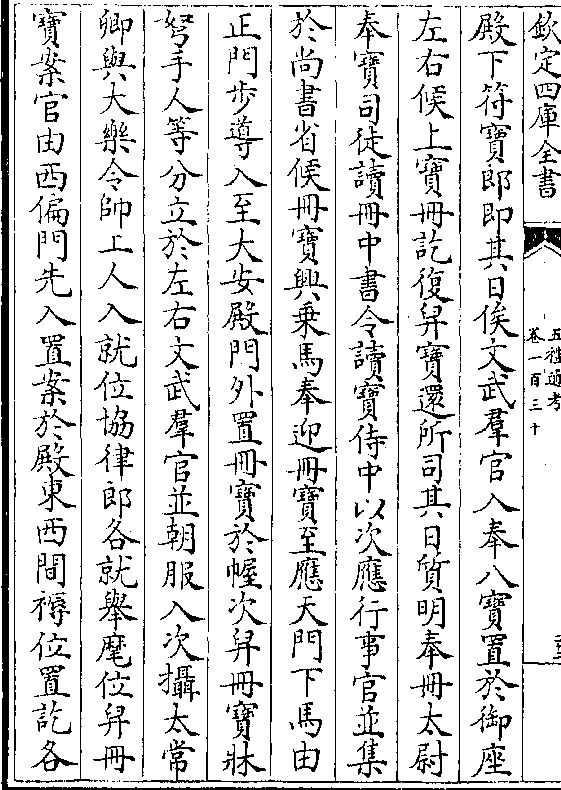 欽定四庫全書
五禮通考
卷一百三十
殿下符寶郎即其日俟文武羣官入奉八寶置於御座
左右候上寶冊訖復舁寶還所司其日質明奉冊太尉
奉寶司徒讀冊中書令讀寶侍中以次應行事官並集
於尚書省候冊寶興乘馬奉迎冊寶至應天門下馬由
正門步導入至大安殿門外置冊寶於幄次舁冊寶牀
弩手人等分立於左右文武羣官並朝服入次攝太常
卿與大樂令帥工人入就位協律郎各就舉麾位舁冊
寶案官由西偏門先入置案於殿東西間褥位置訖各